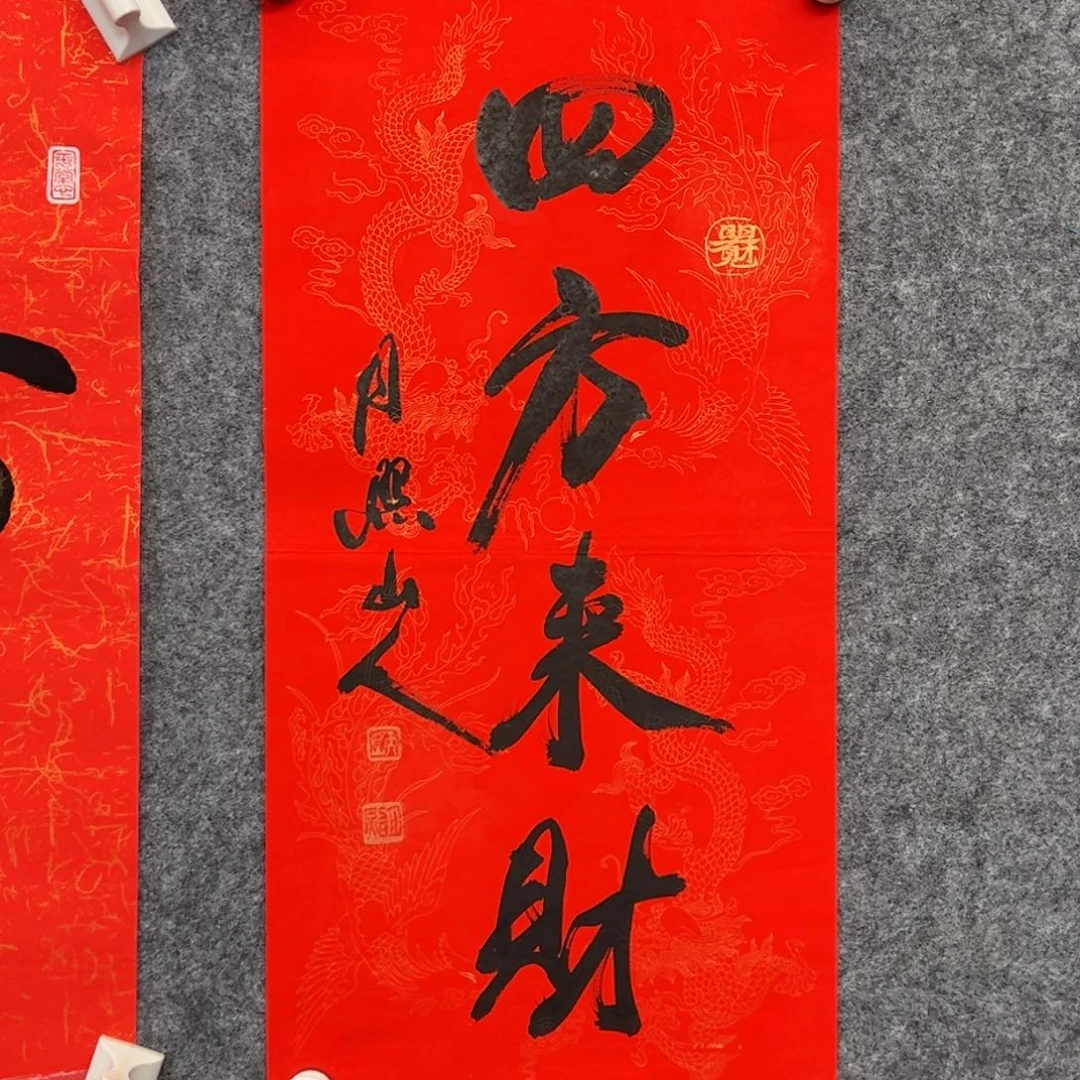 四方来財
月照山人